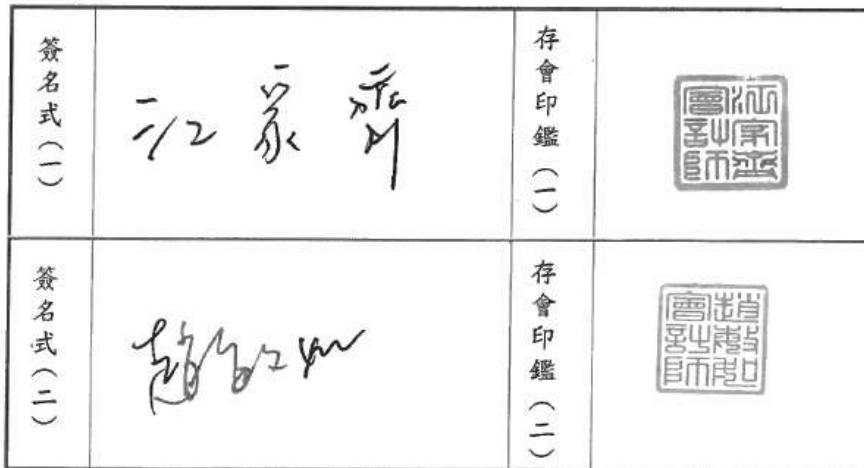 簽名式(一)
江家齊
存會印鑑(一)
江家齊
會計師
簽名式(二)
趙敏如
存會印鑑(二)
趙敏如
會計師